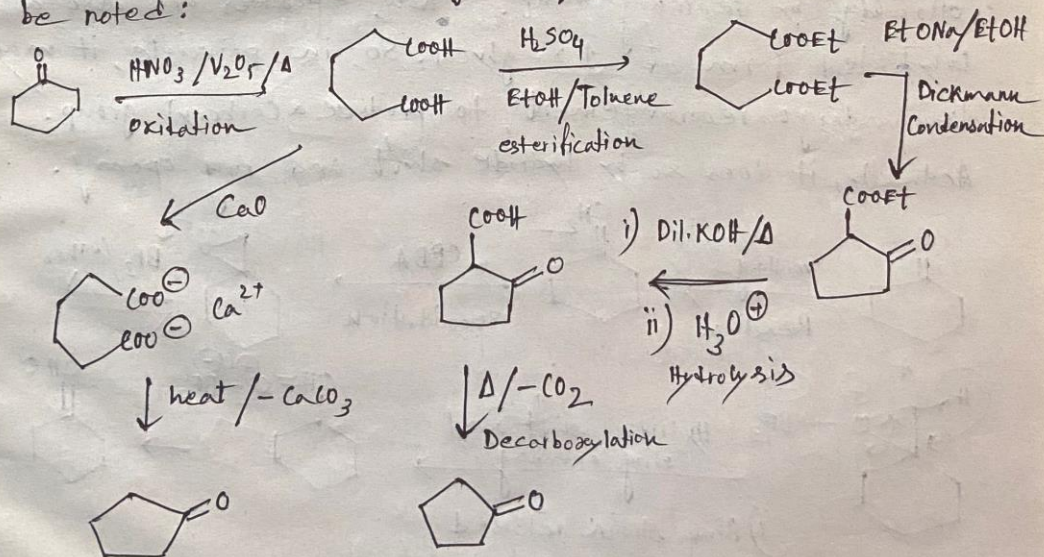 be noted:
O
HNO3/V2O5/Δ
oxidation
COOH
COOH
H2SO4
EtOH/Toluene
esterification
COOEt
COOEt
EtONa/EtOH
Dickmann
Condensation
CaO
COO⊖
COO⊖
Ca2+
heat/-CaCO3
O
COOEt
O
i) Dil. KOH/Δ
ii) H3O⊕
Hydrolysis
COOH
O
Δ/-CO2
Decarboxylation
O